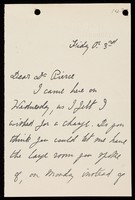 Friday Oct 3rd
Dear Dr Pierce
I came here on
Wednesday, as I felt I
wished for a change. Do you
think you could let me have
the large room you spoke
of, on Monday instead of